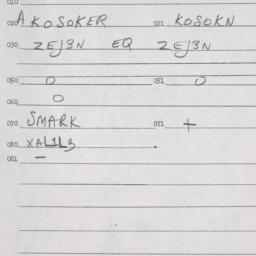 010
020 A KOSOKER 021 KOSOKN
030 ZEJ3N EQ ZEJ3N
050 0 051 0
060 0
070 SMARK 071 +
080 XAL1L3
081 –